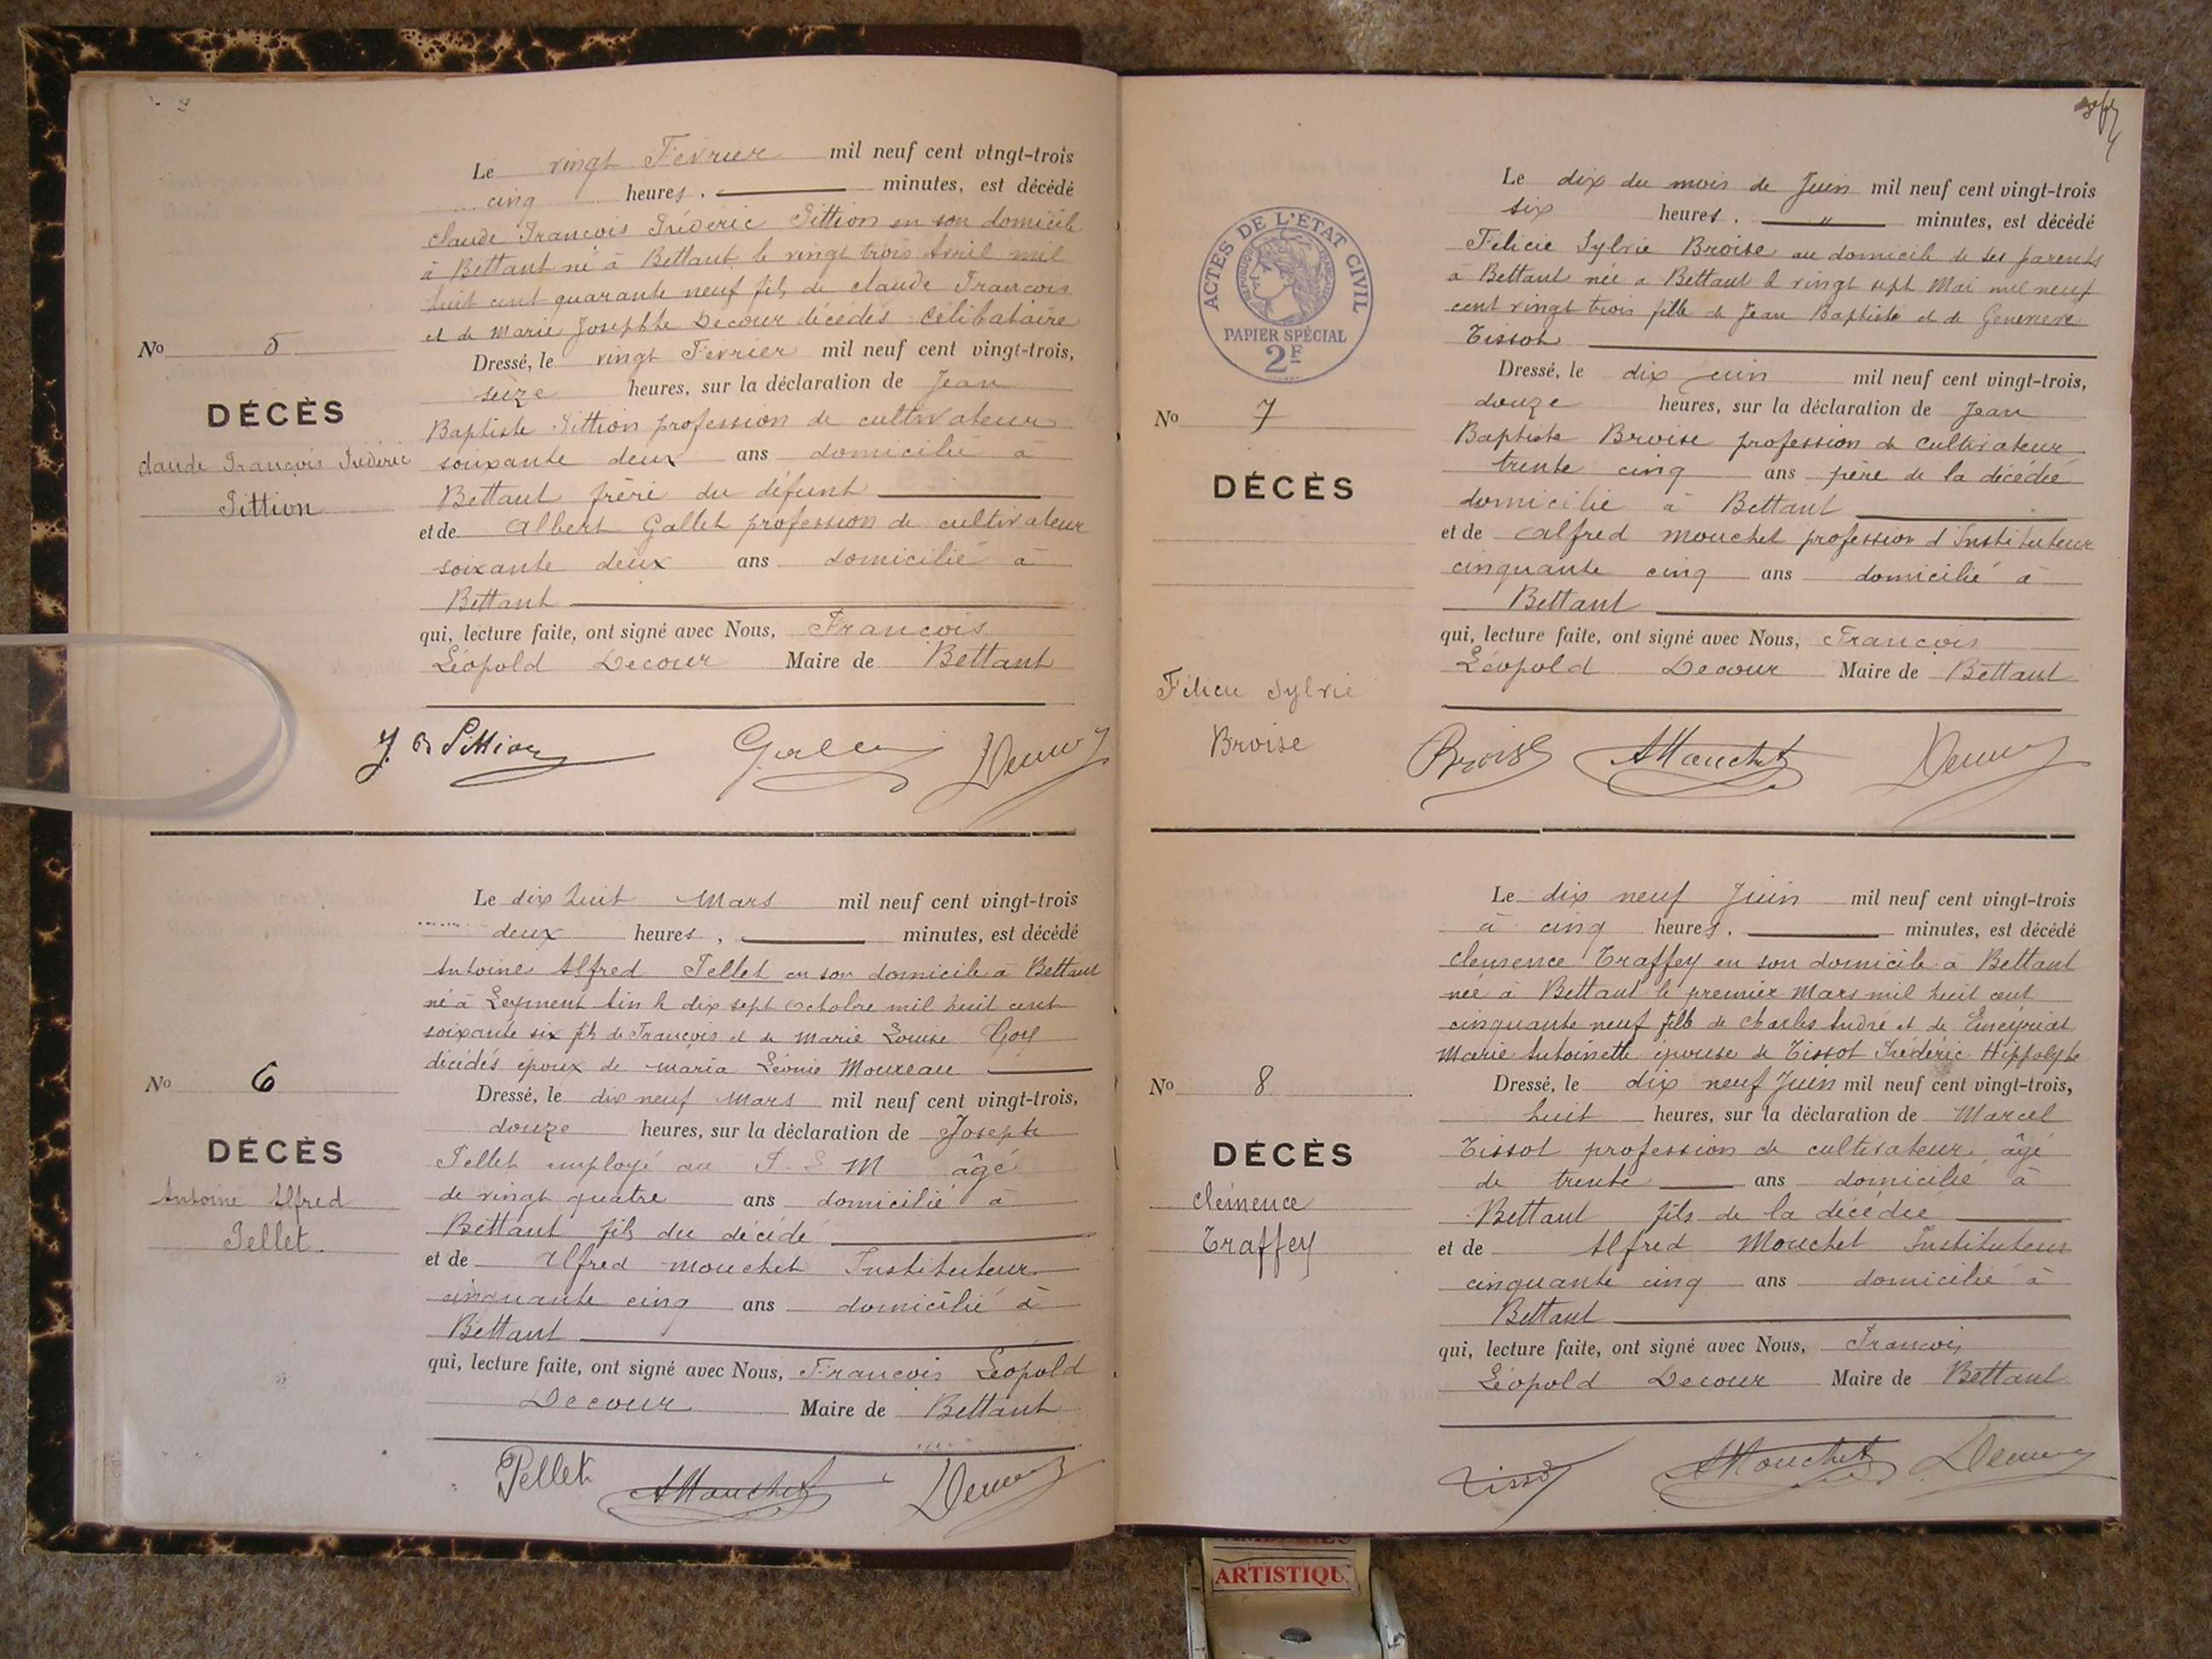 Le vingt Fevrier mil neuf cent vingt-trois
cinq heures, minutes, est décédé
claude Francois Fréderic Pittion en son domicile
à Bettant né à Bettant le vingt trois Avril mil
huit cent quarante neuf fils de claude Francois
et de Marie Josephte Decour décédés Célibataire
No 5
Dressé, le vingt Fevrier mil neuf cent vingt-trois,
seize heures, sur la déclaration de Jean
DÉCÈS
claude François Fréderic
Pittion
Baptiste Pittion profession de cultivateur
soixante deux ans domicilié à
Bettant frère du défunt
et de Albert Gallet profession de cultivateur
soixante deux ans domicilié à
Bettant
qui, lecture faite, ont signé avec Nous, Francois
Léopold Decour Maire de Bettant
J. B Pittion
Le dix huit Mars mil neuf cent vingt-trois
deux heures, minutes, est décédé
Antoine Alfred Pellet en son domicile à Bettant
né à Leyment Ain le dix sept Octobre mil huit cent
soixante six fils de François et de Marie Louise Goy
décédés époux de Maria Léonie Mouxeau
No 6
Dressé, le dix neuf Mars mil neuf cent vingt-trois,
douze heures, sur la déclaration de Joseph
DÉCÈS
Antoine Alfred
Pellet
Pellet employé au P. L M âgé
de vingt quatre ans domicilié à
Bettant fils du décédé
et de Alfred Mouchet Instituteur
cinquante cinq ans domicilié à
Bettant
qui, lecture faite, ont signé avec Nous, Francois Léopold
Decour Maire de Bettant
Pellet AMouchet
Le dix du mois de Juin mil neuf cent vingt-trois
six heures, " minutes, est décédé
Félicie Sylvie Broise au domicile de ses parents
à Bettant née a Bettant le vingt sept Mai mil neuf
cent vingt trois fille de Jean Baptiste et de Genevieve
Tissot
ACTES DE L'ETAT CIVIL
RÉPUBLIQUE FRANÇAISE
PAPIER SPÉCIAL
2F
No 7
DÉCÈS
Félicie Sylvie
Broise
Dressé, le dix juin mil neuf cent vingt-trois,
douze heures, sur la déclaration de Jean
Baptiste Broise profession de cultivateur
trente cinq ans père de la décédée
domicilié à Bettant
et de Alfred Mouchet profession d'Instituteur
cinquante cinq ans domicilié à
Bettant
qui, lecture faite, ont signé avec Nous, Francois
Léopold Decour Maire de Bettant
Broise AMouchet
Le dix neuf Juin mil neuf cent vingt-trois
à cinq heures. minutes, est décédé
clemence Traffey en son domicile à Bettant
née à Bettant le premier Mars mil huit cent
cinquante neuf fille de Charles André et de Emeyriat
Marie Antoinette épouse de Tissot Fréderic Hippolyte
No 8
DÉCÈS
clémence
Traffey
Dressé, le dix neuf Juin mil neuf cent vingt-trois,
huit heures, sur la déclaration de Marcel
Tissot profession de cultivateur âgé
de trente ans domicilié à
Bettant fils de la décédée
et de Alfred Mouchet Instituteur
cinquante cinq ans domicilié à
Bettant
qui, lecture faite, ont signé avec Nous, Francois
Léopold Decour Maire de Bettant
Tissot AMouchet
ARTISTIQU